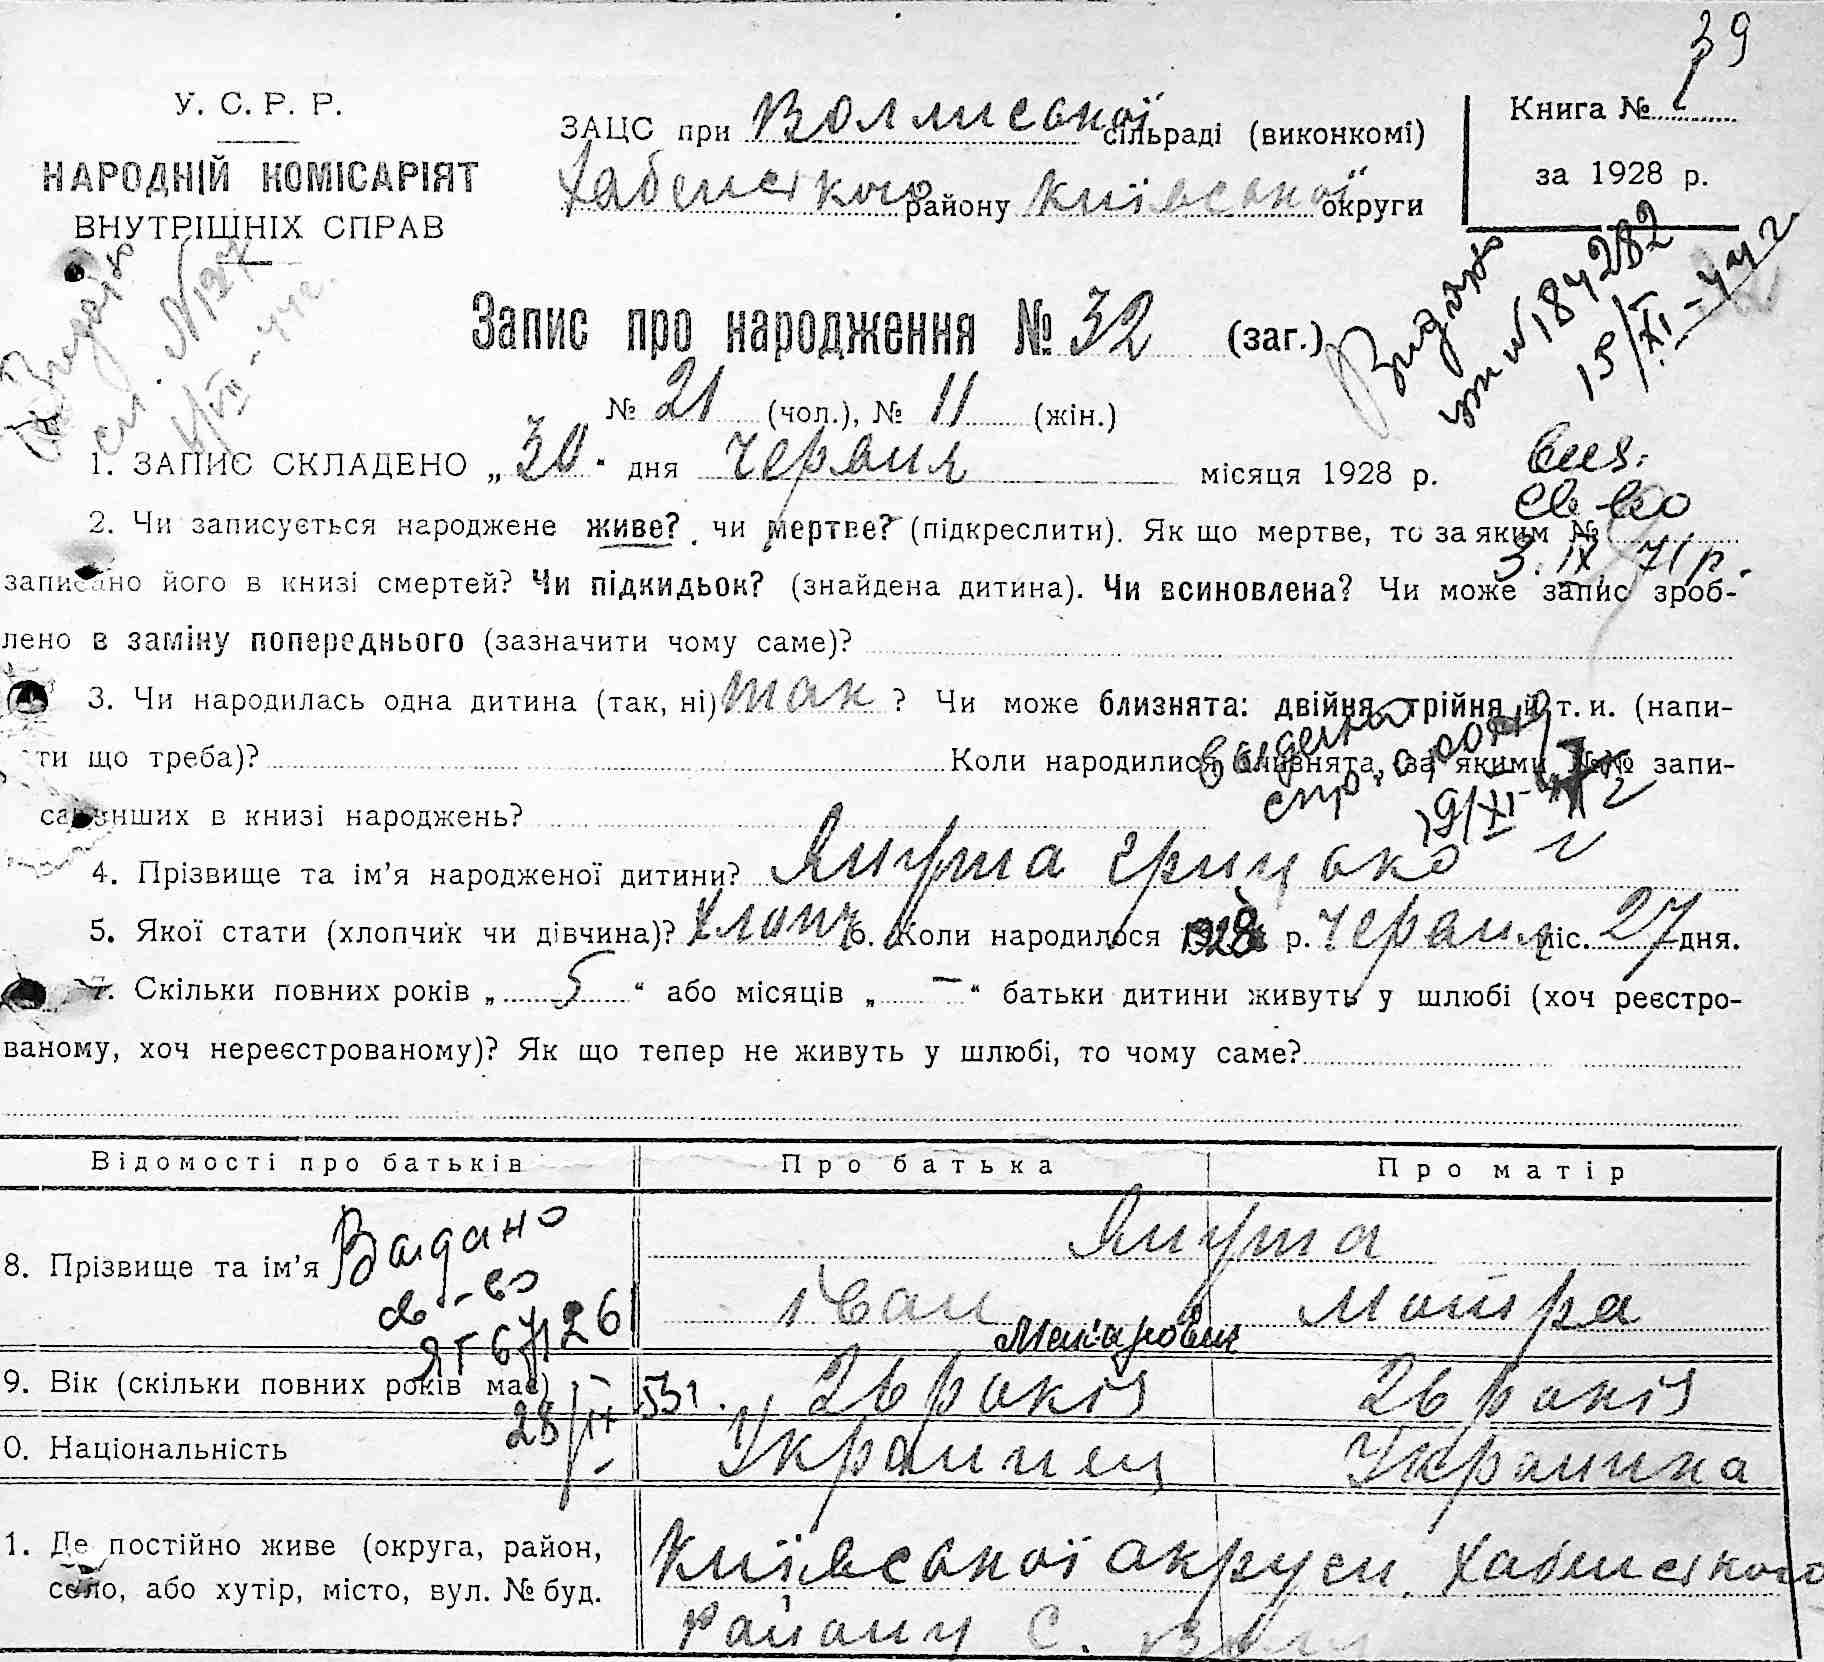 39
У. С. Р. Р.
НАРОДНІЙ КОМІСАРІЯТ
ВНУТРІШНІХ СПРАВ
ЗАЦС при сільраді (виконкомі)
району Київської округи
Книга №
за 1928 р.
Запис про народження № 32 (заг.)
№ 21 (чол.), № 11 (жін.)
Видано
№ 184282
15/XI-44 г
1. ЗАПИС СКЛАДЕНО „30“ дня червня місяця 1928 р.
2. Чи записується народжене живе? чи мертве? (підкреслити). Як що мертве, то за яким №
3. IX 71р.
записано його в книзі смертей? Чи підкидьок? (знайдена дитина). Чи всиновлена? Чи може запис зроб-
лено в заміну попереднього (зазначити чому саме)?
3. Чи народилась одна дитина (так, ні) так ? Чи може близнята: двійня, трійня й т. и. (напи-
ти що треба)? Коли народилися близнята, за якими №№ запи-
инших в книзі народжень?
4. Прізвище та ім’я народженої дитини? Янута Грицько
5. Якої стати (хлопчик чи дівчина)? Хлопч. 6. Коли народилося 1928 р. червня міс. 27 дня.
7. Скільки повних років „ 5 “ або місяців „ – “ батьки дитини живуть у шлюбі (хоч реєстро-
ваному, хоч нереєстрованому)? Як що тепер не живуть у шлюбі, то чому саме?
Відомості про батьків Про батька Про матір
8. Прізвище та ім’я Янута
Видано
св-во
Іван Мотря
Макарович
9. Вік (скільки повних років має) 26 років 26 років
0. Національність Украинец Украинка
1. Де постійно живе (округа, район,
село, або хутір, місто, вул. № буд.
Київської округи
району с.